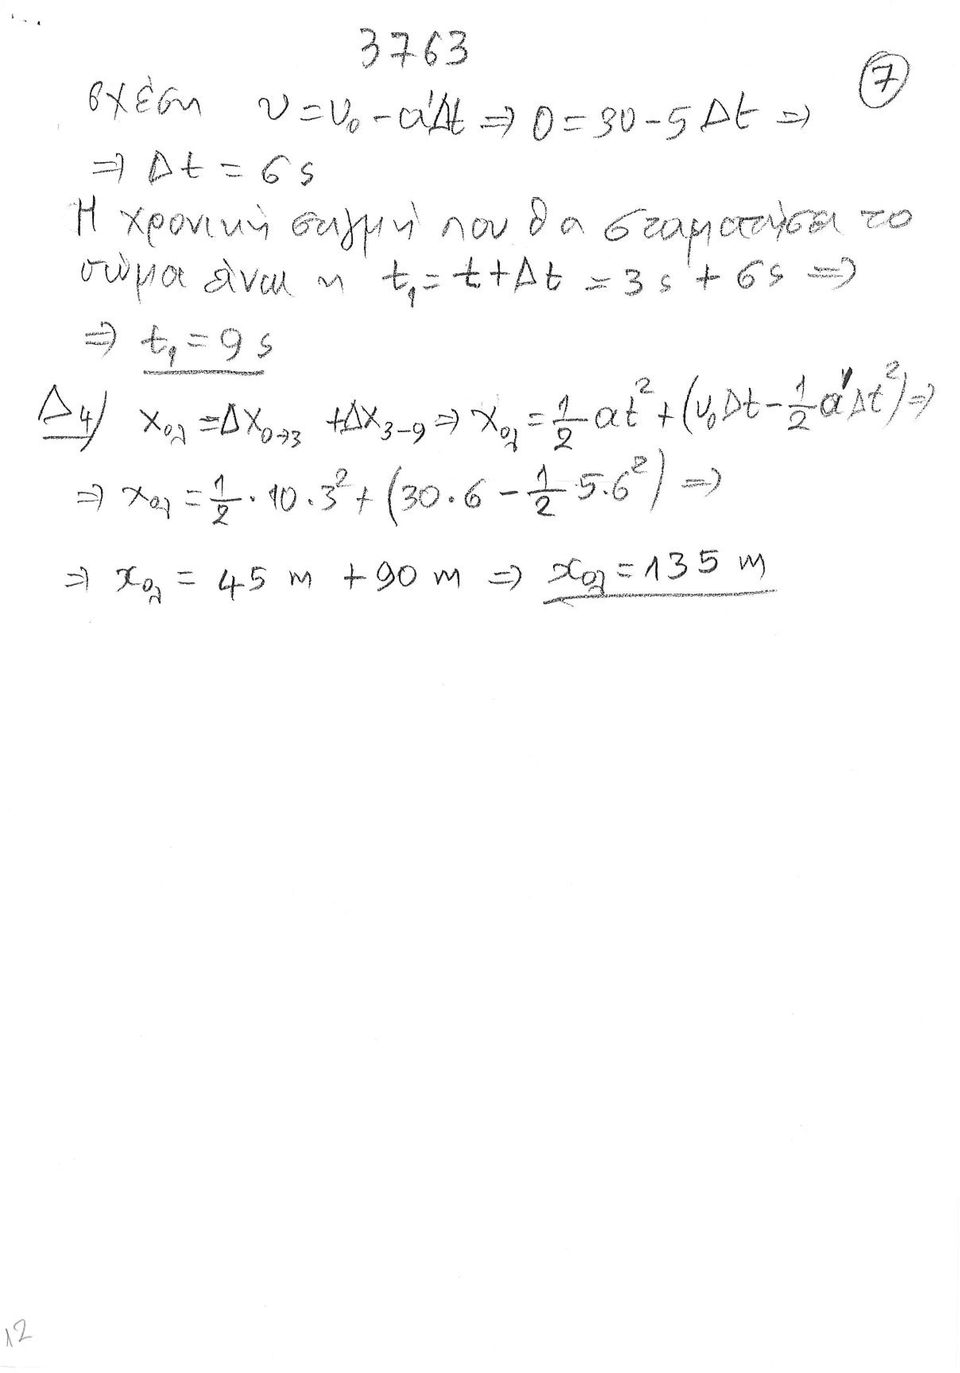 3763
7
σχέση υ = υ₀ - α'Δt ⇒ 0 = 30 - 5 Δt ⇒
⇒ Δt = 6 s
Η χρονική στιγμή που θα σταματήσει το
σώμα είναι η t₁ = t + Δt = 3 s + 6 s ⇒
⇒ t₁ = 9 s
Δ4) x₀λ = Δx₀→₃ + Δx₃₋₉ ⇒ x₀λ = 1/2 αt² + (υ₀Δt - 1/2 α'Δt²) ⇒
⇒ x₀λ = 1/2 · 10 · 3² + (30 · 6 - 1/2 5 · 6²) ⇒
⇒ x₀λ = 45 m + 90 m ⇒ x₀λ = 135 m
12